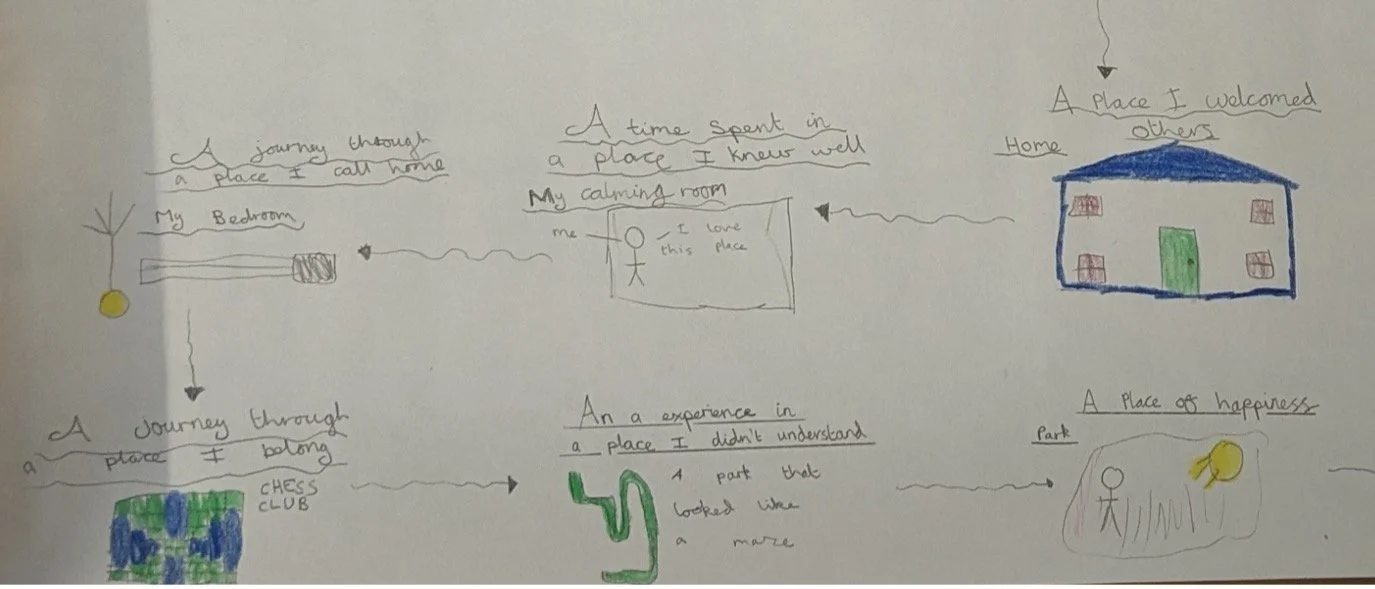 A place I welcomed
others
Home
A time spent in
a place I knew well
My calming room
me
I love
this place
A journey through
a place I call home
My Bedroom
A journey through
a place I belong
CHESS
CLUB
An a experience in
a place I didn't understand
A part that
looked like
a maze
A place of happiness
Park